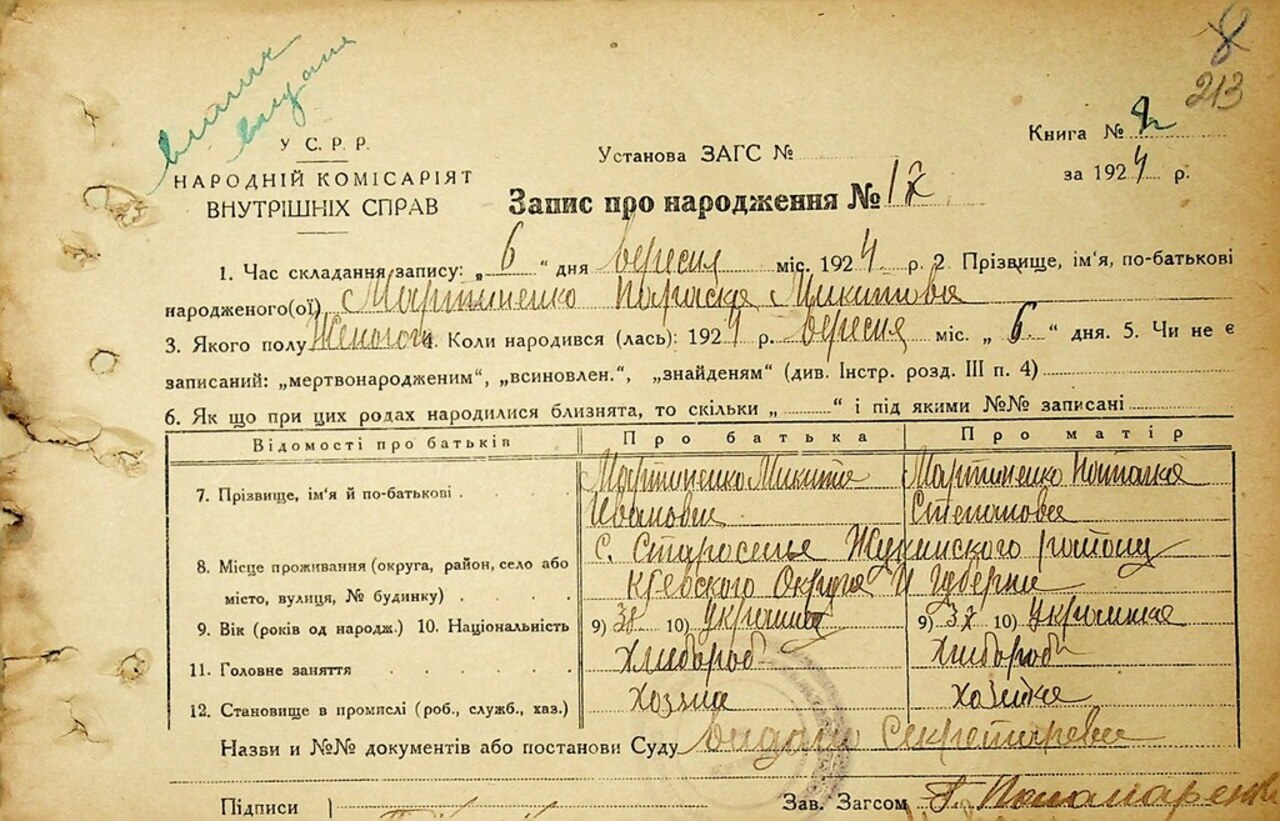 виписка
видана
8
213
У С. Р. Р.
НАРОДНІЙ КОМІСАРІЯТ
ВНУТРІШНІХ СПРАВ
Установа ЗАГС №
Книга № 2
за 1924 р.
Запис про народження № 17
1. Час складання запису: „ 6 “ дня вересня міс. 1924 р. 2. Прізвище, ім'я, по-батькові
народженого(ої) Мартиненко Параска Микитова
3. Якого полу Женского 4. Коли народився (лась): 1924 р. вересня міс. „ 6 “ дня. 5. Чи не є
записаний: „мертвонародженим“, „всиновлен.“, „знайденям“ (див. Інстр. розд. III п. 4)
6. Як що при цих родах народилися близнята, то скільки „ “ і під якими №№ записані
Відомості про батьків Про батька Про матір
7. Прізвище, ім'я й по-батькові Мартиненко Микита Мартиненко Наталка
Иванович Степановна
8. Місце проживання (округа, район, село або
місто, вулиця, № будинку)
С. Староселье Жукинского району
Киевского Округа И Губерни
9. Вік (років од народж.) 10. Національність 9) 38 10) Украинец 9) 37 10) Украинка
11. Головне заняття Хлибороб Хлибороб
12. Становище в промислі (роб., служб., хаз.) Хозяин хозяйка
Назви и №№ документів або постанови Суду видана
Підписи Зав. Загсом Пономаренко